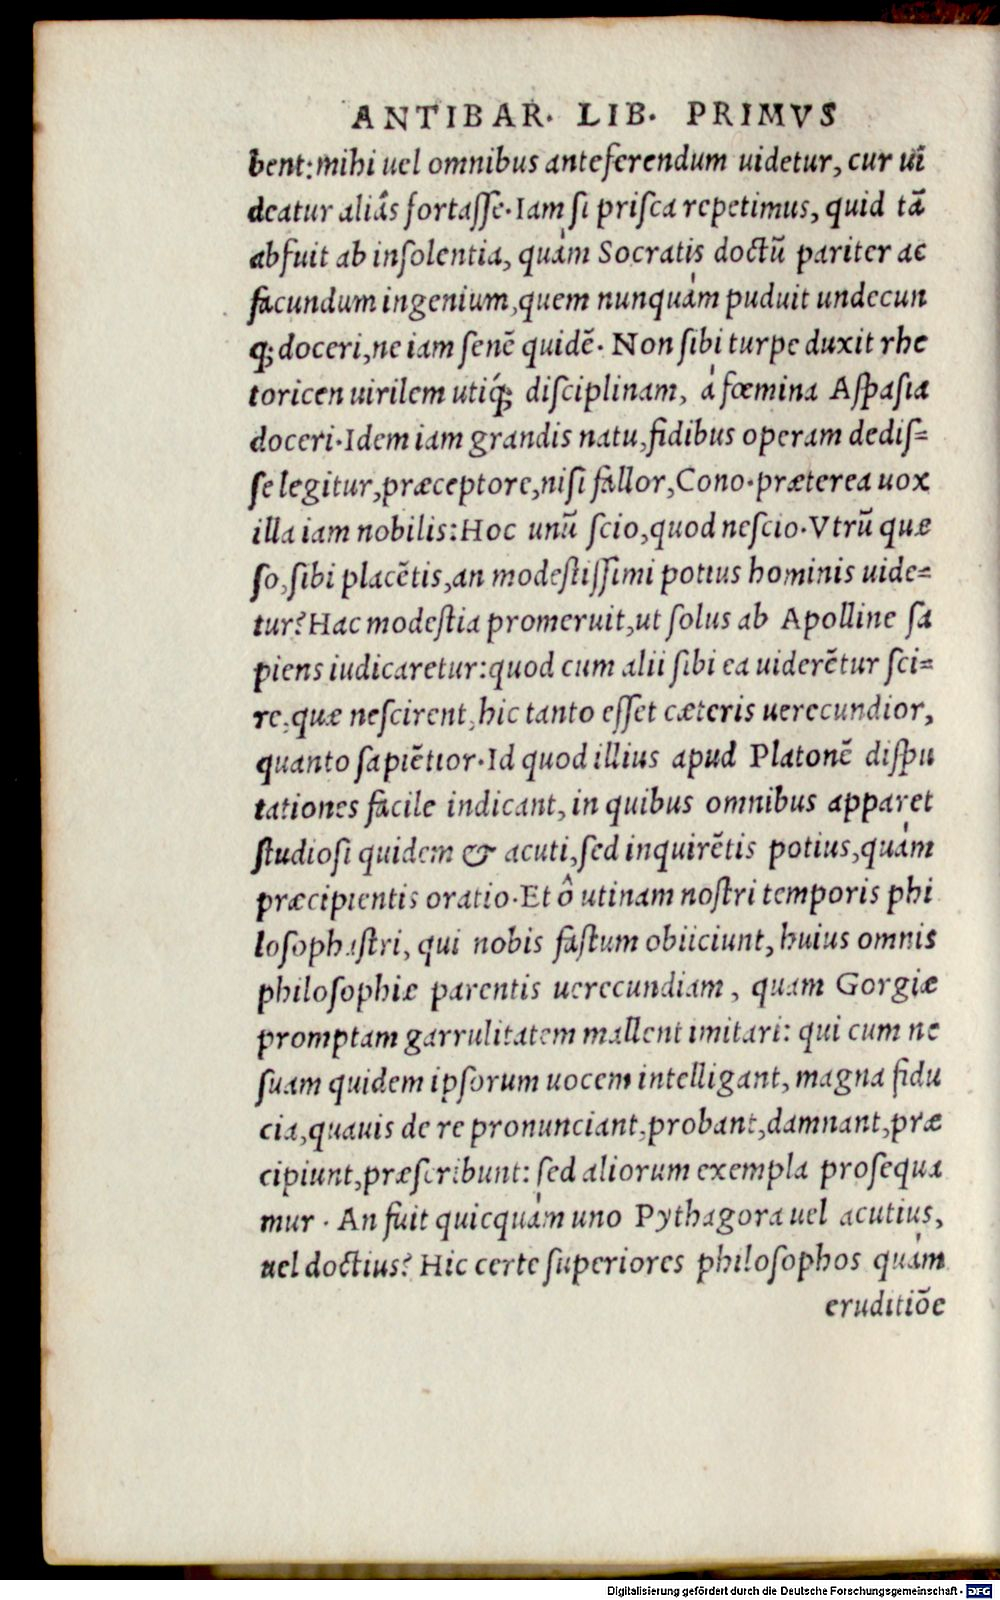 ANTIBAR. LIB. PRIMVS
bent: mihi uel omnibus anteferendum uidetur, cur ui
deatur aliâs fortaſſe. Iam ſi priſca repetimus, quid tã
abfuit ab inſolentia, quàm Socratis doctũ pariter ac
facundum ingenium, quem nunquàm puduit undecun
q; doceri, ne iam ſenẽ quidẽ. Non ſibi turpe duxit rhe
toricen uirilem utiq́; diſciplinam, à fœmina Aſpaſia
doceri. Idem iam grandis natu, fidibus operam dediſ=
ſe legitur, præceptore, niſi fallor, Cono. præterea uox
illa iam nobilis: Hoc unũ ſcio, quod neſcio. Vtrũ quæ
ſo, ſibi placẽtis, an modeſtiſſimi potius hominis uide=
tur? Hac modeſtia promeruit, ut ſolus ab Apolline ſa
piens iudicaretur: quod cum alii ſibi ea uiderẽtur ſci=
re, quæ neſcirent, hic tanto eſſet cæteris uerecundior,
quanto ſapiẽtior. Id quod illius apud Platonẽ diſpu
tationes facile indicant, in quibus omnibus apparet
ſtudioſi quidem & acuti, ſed inquirẽtis potius, quàm
præcipientis oratio. Et ô utinam noſtri temporis phi
loſophaſtri, qui nobis faſtum obiiciunt, huius omnis
philoſophiæ parentis uerecundiam, quam Gorgiæ
promptam garrulitatem mallent imitari: qui cum ne
ſuam quidem ipſorum uocem intelligant, magna fidu
cia, quauis de re pronunciant, probant, damnant, præ
cipiunt, præſcribunt: ſed aliorum exempla proſequa
mur. An fuit quicquàm uno Pythagora uel acutius,
uel doctius? Hic certe ſuperiores philoſophos quàm
eruditiõe
Digitalisierung gefördert durch die Deutsche Forschungsgemeinschaft - DFG